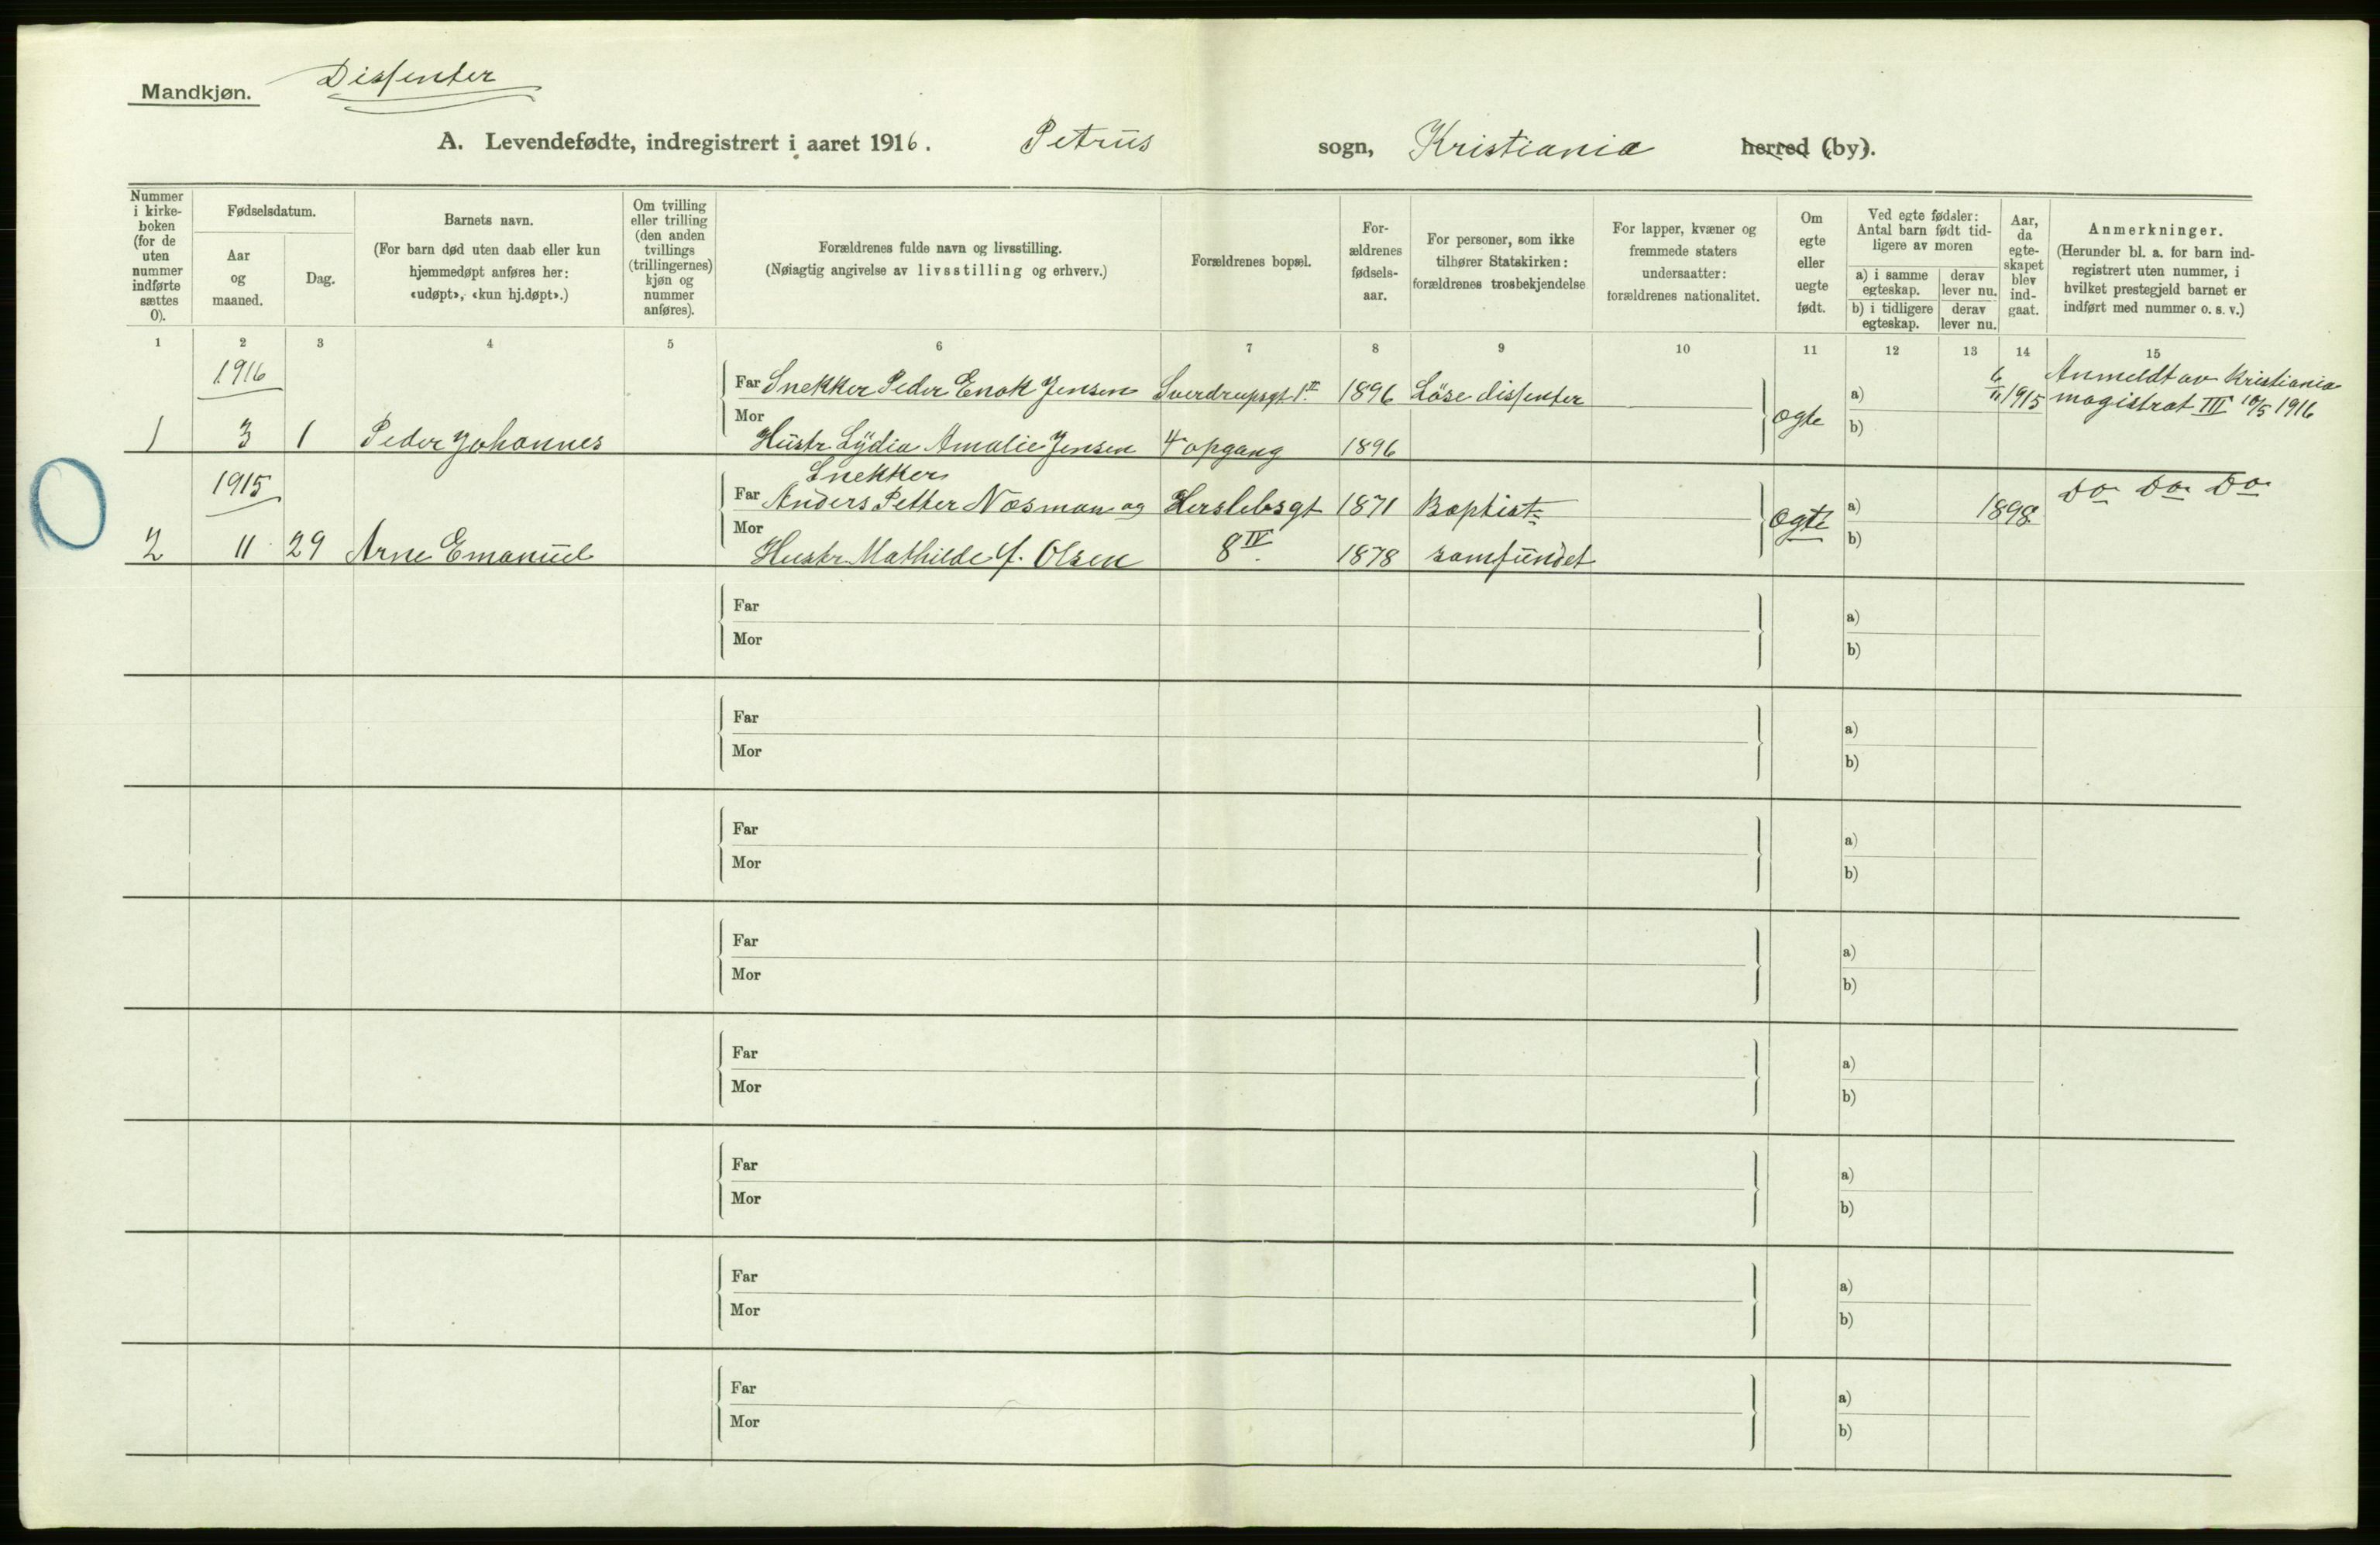 Mandkjøn. Dissenter
A. Levendefødte, indregistrert i aaret 1916. Petrus sogn, Kristiania herred (by).
Nummer i kirkeboken (for de uten nummer indførte sættes 0).
Fødselsdatum.
Aar og maaned.
Dag.
Barnets navn.
(For barn død uten daab eller kun hjemmedøpt anføres her: «udøpt», «kun hj.døpt».)
Om tvilling eller trilling (den anden tvillings (trillingernes) kjøn og nummer anføres).
Forældrenes fulde navn og livsstilling.
(Nøiagtig angivelse av livsstilling og erhverv.)
Forældrenes bopæl.
Forældrenes fødselsaar.
For personer, som ikke tilhører Statskirken: forældrenes trosbekjendelse
For lapper, kvæner og fremmede staters undersaatter: forældrenes nationalitet.
Om egte eller uegte født.
Ved egte fødsler: Antal barn født tidligere av moren
a) i samme egteskap. derav lever nu.
b) i tidligere egteskap. derav lever nu.
Aar, da egteskapet blev indgaat.
Anmerkninger.
(Herunder bl. a. for barn indregistrert uten nummer, i hvilket prestegjeld barnet er indført med nummer o. s. v.)
1 2 3 4 5 6 7 8 9 10 11 12 13 14 15
1916
Far Snekker Peder Enok Jensen Sverdrupsgt 1 II 1896 Løse dissenter a) 6/11 1915 Anmeldt av Kristiania
magistrat III 10/5 1916
1 3 1 Peder Johannes Mor Hustr. Lydia Amalie Jensen 4 opgang 1896 egte b)
Snekker
1915 Far Anders Petter Nosman og Herslebsgt 1871 Baptist= a) 1898 Do Do Do
2 11 29 Arne Emanuel Mor Hustr. Mathilde f. Olsen 8 IV 1878 samfundet egte b)
Far a)
Mor b)
Far a)
Mor b)
Far a)
Mor b)
Far a)
Mor b)
Far a)
Mor b)
Far a)
Mor b)
Far a)
Mor b)
Far a)
Mor b)